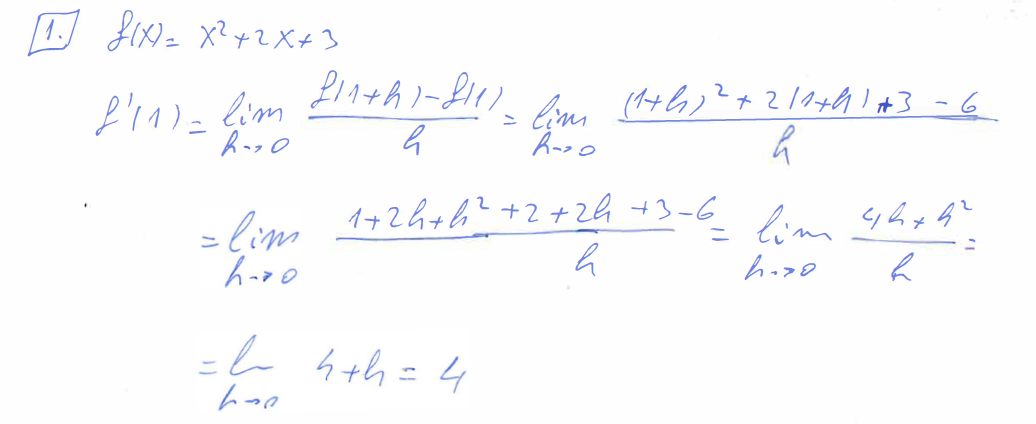 1. f(x) = x² + 2x + 3
f'(1) = lim h→0 (f(1+h) - f(1))/h = lim h→0 ((1+h)² + 2(1+h) + 3 - 6)/h
= lim h→0 (1 + 2h + h² + 2 + 2h + 3 - 6)/h = lim h→0 (4h + h²)/h =
= lim h→0 4+h = 4